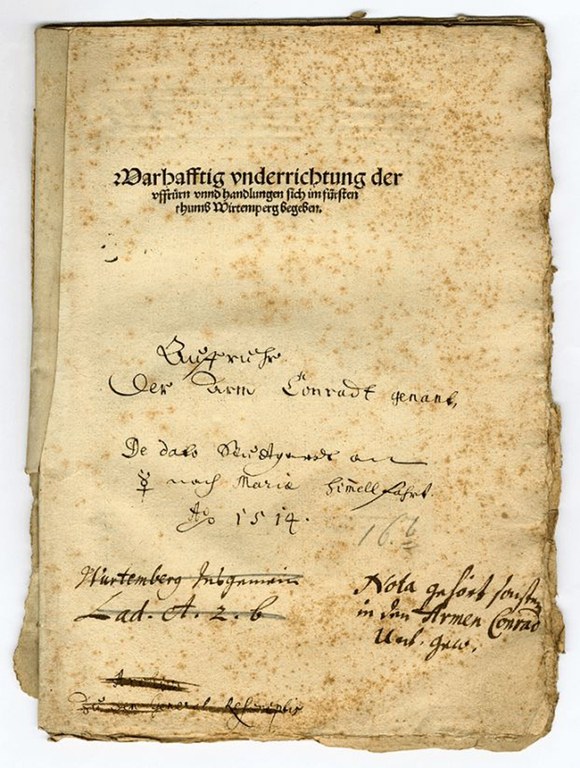 Warhafftig vnderrichtung der
vffrürn vnnd handlungen sich im fürsten
thumb Wirtemperg begeben.
Auffruhr
Der Arm Conradt genant,
De dato Stuttgardt an
♀ nach Mariæ himmellfahrt.
Aō 1514.
16.
Würtemberg Insgemein
Lad. A. 2. b
Nota gehört sonsten
in den Armen Conrad
Zu den General Rescriptis